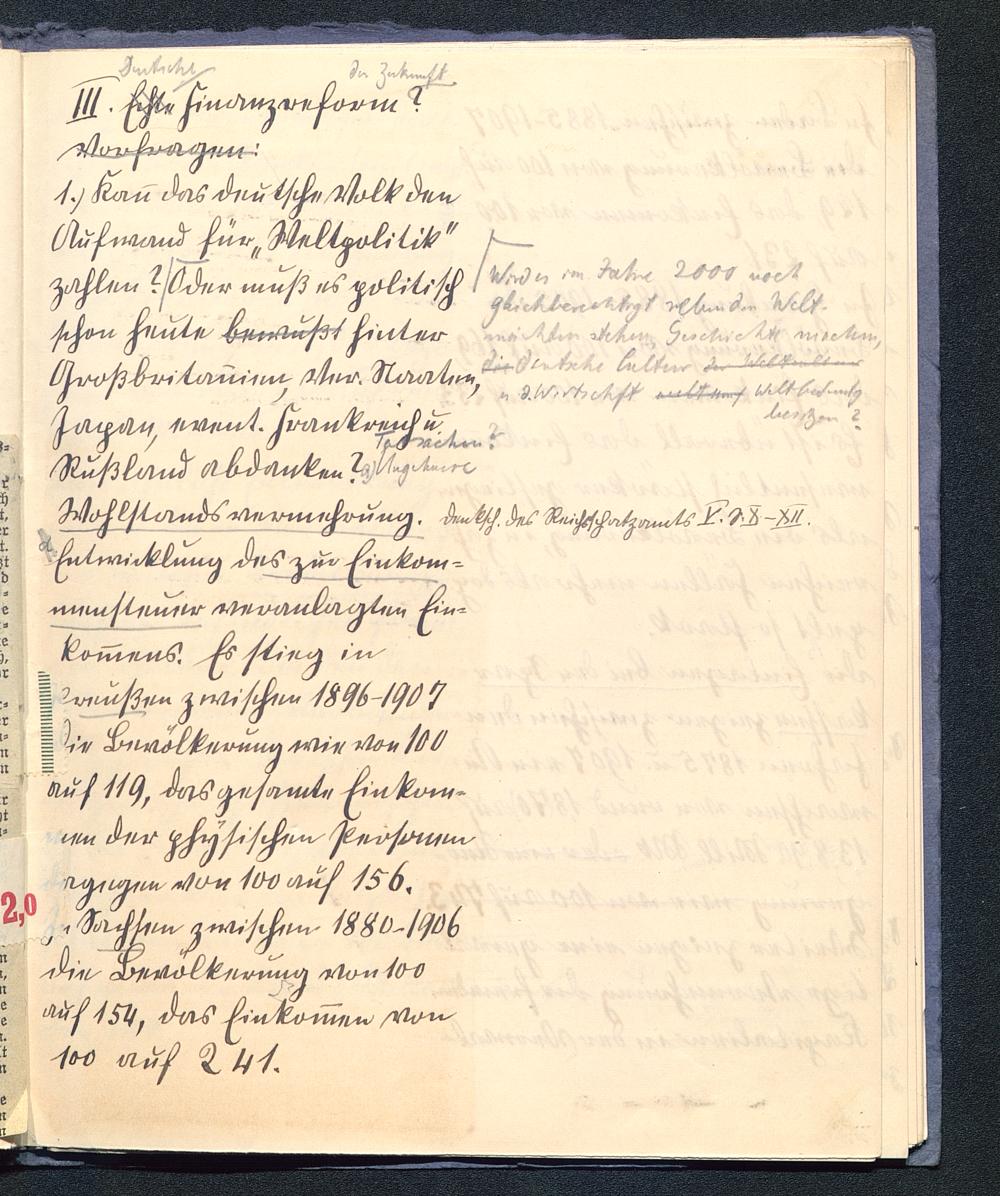 Deutsche der Zukunft
III. Echte Finanzreform?
Vorfragen:
1.) Kann̄ das deutsche Volk den
Aufwand für „Weltpolitik"
zahlen? Oder muß es politisch
schon heute bewußt hinter
Großbritan̄ien, Ver. Staaten,
Japan, event. Frankreich u.
Rußland abdanken?
Wird es im Jahre 2000 noch
gleichberechtigt neben den Welt-
mächten stehen, Geschichte machen,
die deutsche Cultur der Weltkultur
u d. Wirtschaft Weltbedeutg
besitzen?
Tatsachen?
a) Ungeheure
Wohlstandsvermehrung. Denksch. des Reichsschatzamts V. S. X–XII.
Entwicklung des zur Einkom-
mensteuer veranlagten Ein-
kom̄ens. Es stieg in
Preußen zwischen 1896-1907
die Bevölkerung wie von 100
auf 119, das gesamte Einkom-
men der physischen Personen
dagegen von 100 auf 156.
In Sachsen zwischen 1880-1906
die Bevölkerung von 100
auf 154, das Einkom̄en von
100 auf 241.
2,0